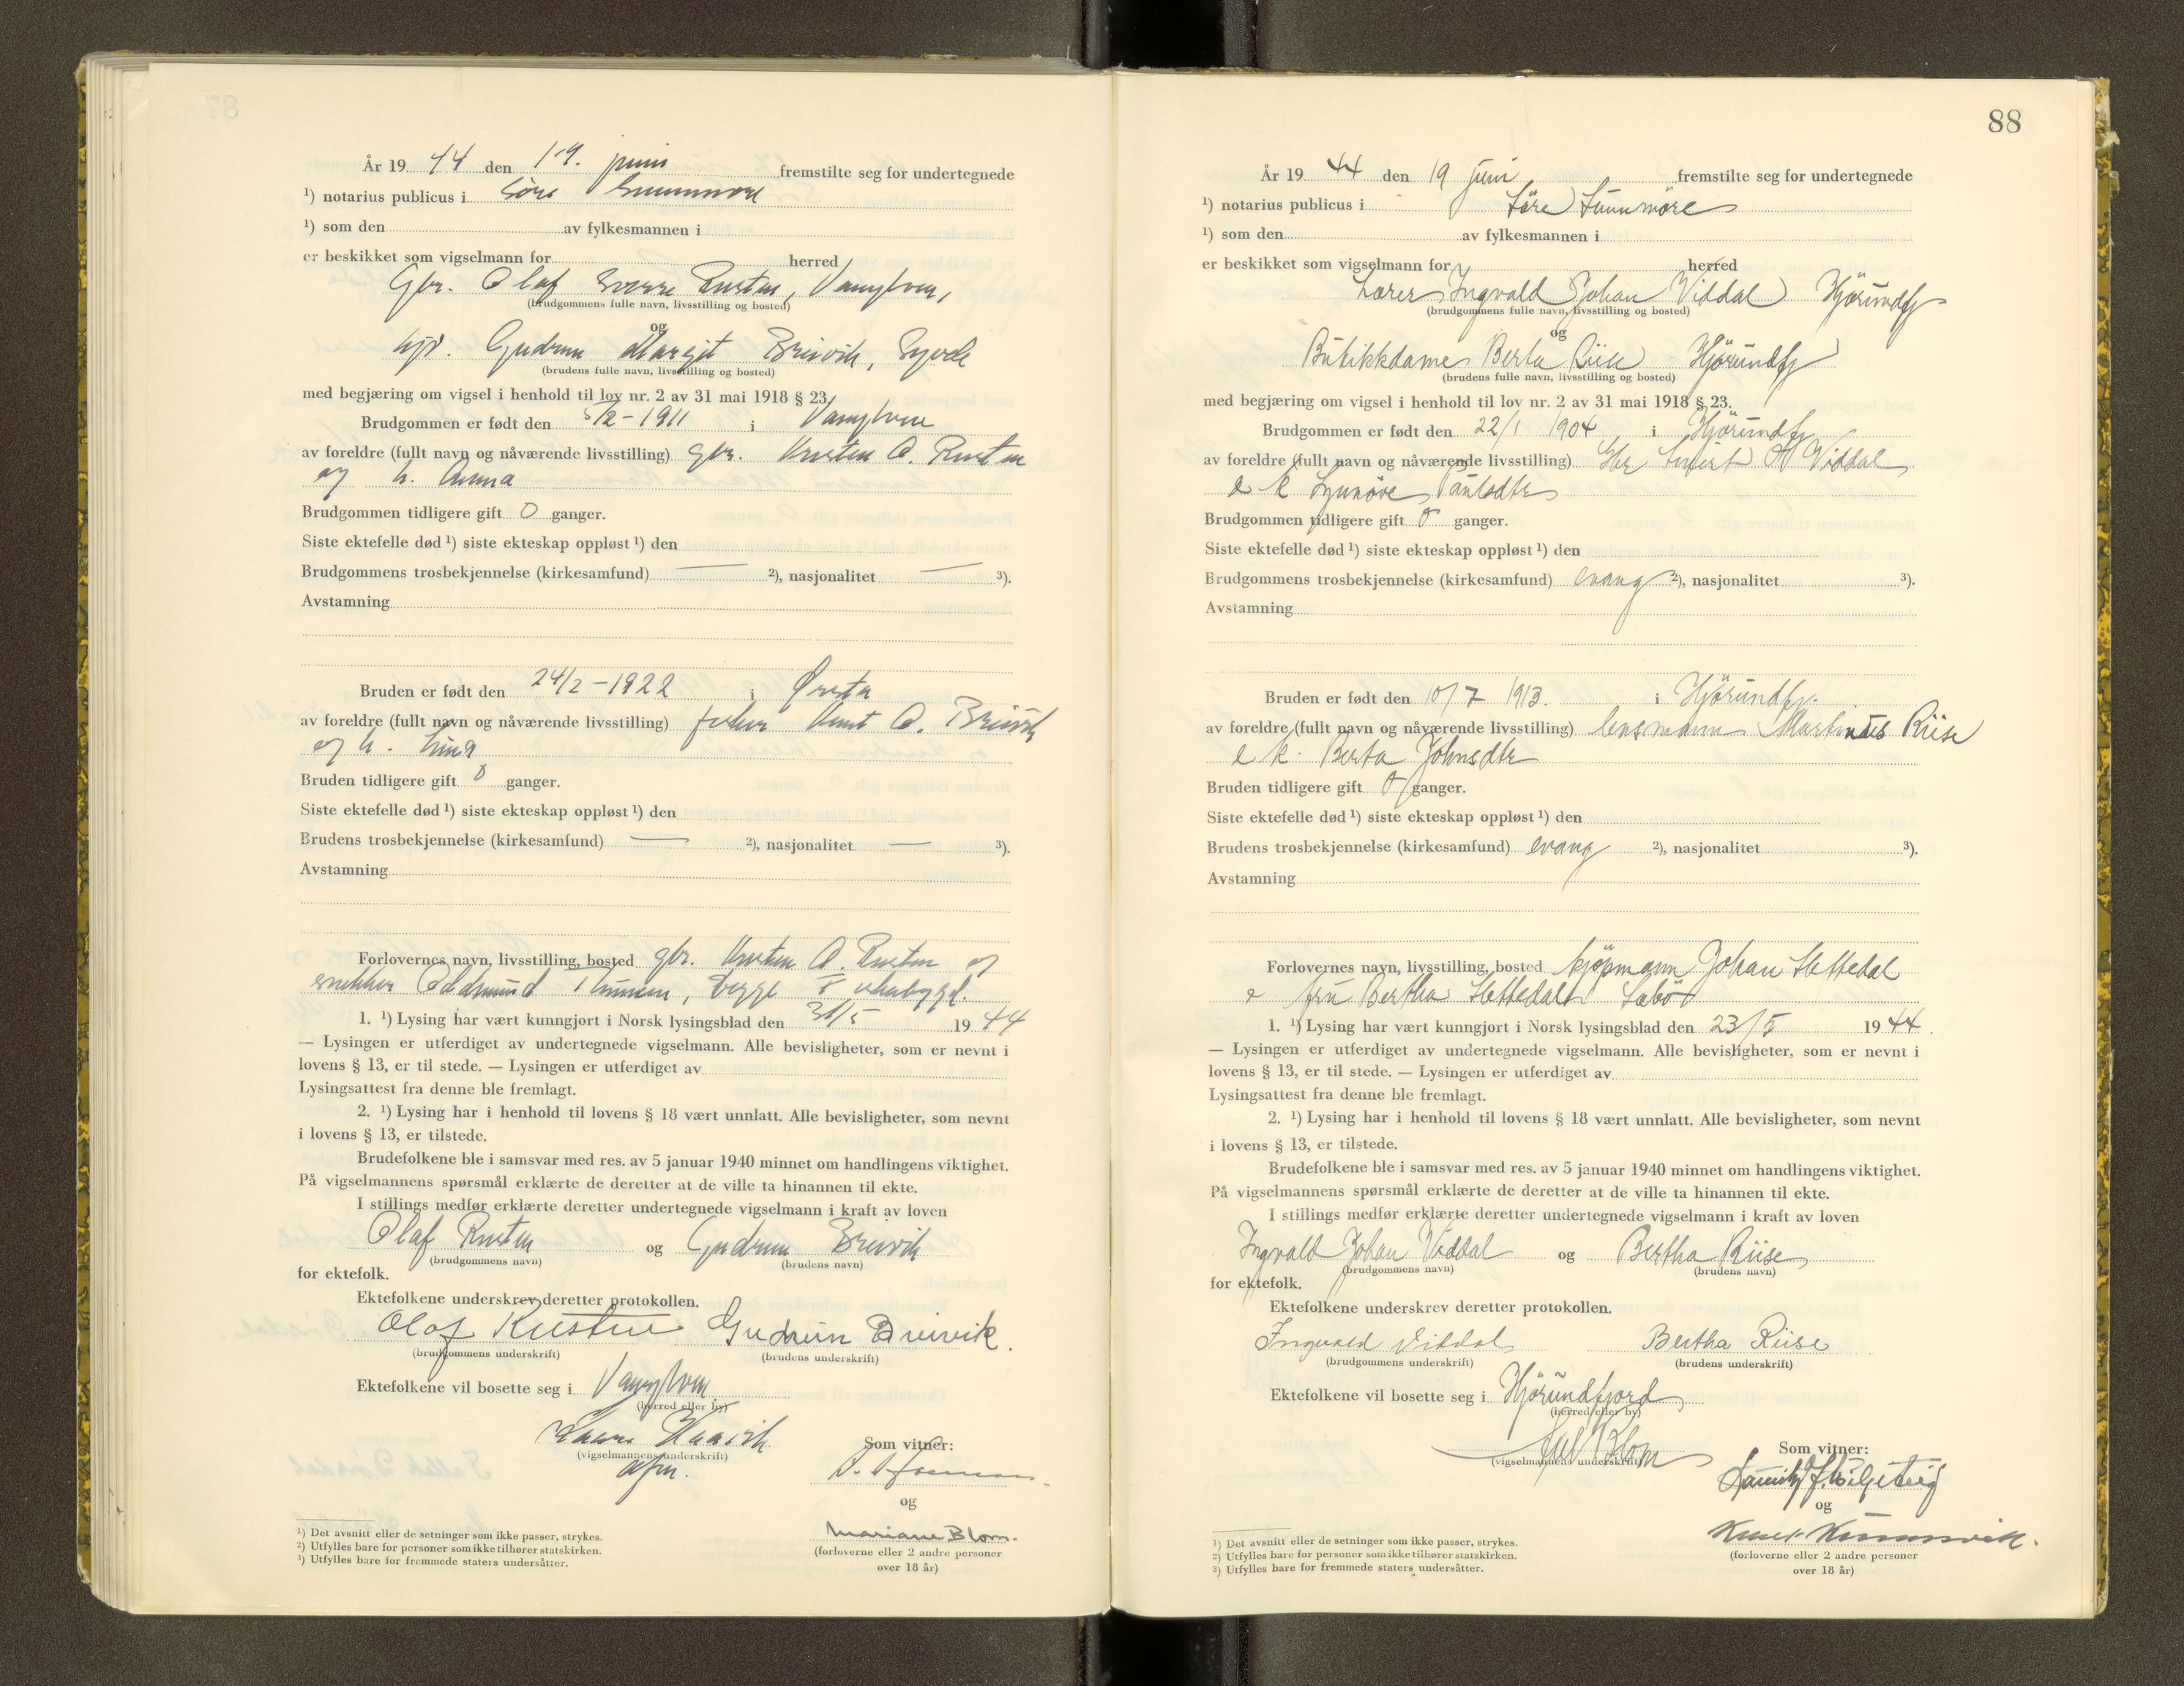 År 19 44 den 19. juni fremstilte seg for undertegnede
¹) notarius publicus i Søre Sunnmøre
¹) som den av fylkesmannen i
er beskikket som vigselmann for herred
Gbr. Olaf Sverre Rusten, Vanylven,
(brudgommens fulle navn, livsstilling og bosted)
og
Gudrun Margit Breivik, Syvde
(brudens fulle navn, livsstilling og bosted)
med begjæring om vigsel i henhold til lov nr. 2 av 31 mai 1918 § 23.
Brudgommen er født den 5/2-1911 i Vanylven
av foreldre (fullt navn og nåværende livsstilling) gbr. Kristen O. Rusten
og h. Anna
Brudgommen tidligere gift 0 ganger.
Siste ektefelle død ¹) siste ekteskap oppløst ¹) den
Brudgommens trosbekjennelse (kirkesamfund) — ²), nasjonalitet — ³).
Avstamning
Bruden er født den 24/2-1922 i Ørsta
av foreldre (fullt navn og nåværende livsstilling) fisker Knut O. Breivik
og h. Lina
Bruden tidligere gift 0 ganger.
Siste ektefelle død ¹) siste ekteskap oppløst ¹) den
Brudens trosbekjennelse (kirkesamfund) — ²), nasjonalitet — ³).
Avstamning
Forlovernes navn, livsstilling, bosted gbr. Kristen O. Rusten og
snekker Oddmund Thunem, begge
1. ¹) Lysing har vært kunngjort i Norsk lysingsblad den 31/5 19 44
— Lysingen er utferdiget av undertegnede vigselmann. Alle bevisligheter, som er nevnt i
lovens § 13, er til stede. — Lysingen er utferdiget av
Lysingsattest fra denne ble fremlagt.
2. ¹) Lysing har i henhold til lovens § 18 vært unnlatt. Alle bevisligheter, som nevnt
i lovens § 13, er tilstede.
Brudefolkene ble i samsvar med res. av 5 januar 1940 minnet om handlingens viktighet.
På vigselmannens spørsmål erklærte de deretter at de ville ta hinannen til ekte.
I stillings medfør erklærte deretter undertegnede vigselmann i kraft av loven
Olaf Rusten og Gudrun Breivik
(brudgommens navn) (brudens navn)
for ektefolk.
Ektefolkene underskrev deretter protokollen.
Olaf Rusten Gudrun Breivik.
(brudgommens underskrift) (brudens underskrift)
Ektefolkene vil bosette seg i Vanylven
(herred eller by)
(vigselmannens underskrift)
Som vitner:
og
Mariane Blom.
(forloverne eller 2 andre personer
over 18 år)
¹) Det avsnitt eller de setninger som ikke passer, strykes.
²) Utfylles bare for personer som ikke tilhører statskirken.
³) Utfylles bare for fremmede staters undersåtter.
88
År 19 44 den 19 juni fremstilte seg for undertegnede
¹) notarius publicus i Søre Sunnmøre
¹) som den av fylkesmannen i
er beskikket som vigselmann for herred
Lærer Ingvald Johan Viddal Hjørundfj
(brudgommens fulle navn, livsstilling og bosted)
og
Butikkdame Berta Riise Hjørundfj
(brudens fulle navn, livsstilling og bosted)
med begjæring om vigsel i henhold til lov nr. 2 av 31 mai 1918 § 23.
Brudgommen er født den 22/1 1904 i Hjørundfj
av foreldre (fullt navn og nåværende livsstilling) Gbr Sivert Viddal
Synnøve Paulsdtr
Brudgommen tidligere gift 0 ganger.
Siste ektefelle død ¹) siste ekteskap oppløst ¹) den
Brudgommens trosbekjennelse (kirkesamfund) evang ²), nasjonalitet ³).
Avstamning
Bruden er født den 10/7 1913. i Hjørundfj.
av foreldre (fullt navn og nåværende livsstilling) lensmann Martinus Riise
Berta Johnsdtr
Bruden tidligere gift 0 ganger.
Siste ektefelle død ¹) siste ekteskap oppløst ¹) den
Brudens trosbekjennelse (kirkesamfund) evang ²), nasjonalitet ³).
Avstamning
Forlovernes navn, livsstilling, bosted kjøpmann Johan Slettedal
fru Bertha Slettedal Sæbø
1. ¹) Lysing har vært kunngjort i Norsk lysingsblad den 23/5 19 44.
— Lysingen er utferdiget av undertegnede vigselmann. Alle bevisligheter, som er nevnt i
lovens § 13, er til stede. — Lysingen er utferdiget av
Lysingsattest fra denne ble fremlagt.
2. ¹) Lysing har i henhold til lovens § 18 vært unnlatt. Alle bevisligheter, som nevnt
i lovens § 13, er tilstede.
Brudefolkene ble i samsvar med res. av 5 januar 1940 minnet om handlingens viktighet.
På vigselmannens spørsmål erklærte de deretter at de ville ta hinannen til ekte.
I stillings medfør erklærte deretter undertegnede vigselmann i kraft av loven
Ingvald Johan Viddal og Bertha Riise
(brudgommens navn) (brudens navn)
for ektefolk.
Ektefolkene underskrev deretter protokollen.
Ingvald Viddal Bertha Riise
(brudgommens underskrift) (brudens underskrift)
Ektefolkene vil bosette seg i Hjørundfjord
(herred eller by)
Blom
(vigselmannens underskrift)
Som vitner:
og
Knut
(forloverne eller 2 andre personer
over 18 år)
¹) Det avsnitt eller de setninger som ikke passer, strykes.
²) Utfylles bare for personer som ikke tilhører statskirken.
³) Utfylles bare for fremmede staters undersåtter.